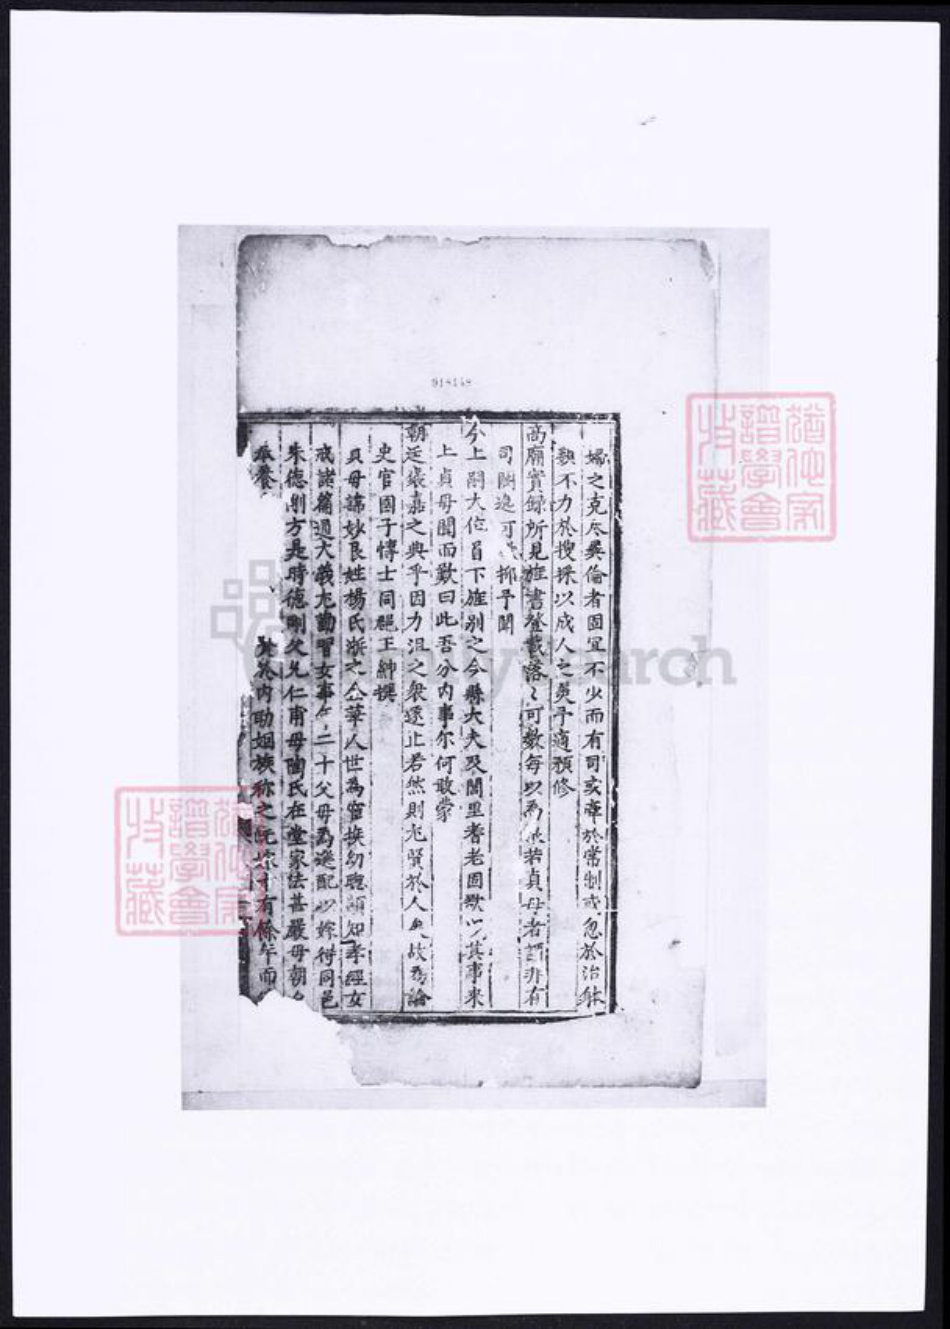 918148
婦之克尽彝倫者固宜不少而有司或牽於常制或忽於治躰
不力於搜採以成人之美予適預修
高廟實錄所見旌書登載落〻可數每以為若貞母者謂非有
司闕逸可抑予聞
今上嗣大位首下旌别之令縣大夫及閭里耆老囬欵以其事来
上貞母聞而歎曰此吾分内事尔何敢蒙
朝廷褒嘉之典乎因力沮之衆遂止若然則尤賢於人矣故為論
史官國子博士同邑王紳撰
貞母諱妙良姓楊氏浙之金華人世為宦族幼聰頴知孝經女
戒諸篇通大義尤勤習女事年二十父母為選配以嫁得同邑
朱德剛方是時德剛父允仁甫母陶氏在堂家法甚嚴母朝
養内助姻族称之有餘年而
猶他家譜學會收藏
猶他家譜學會收藏
FamilySearch